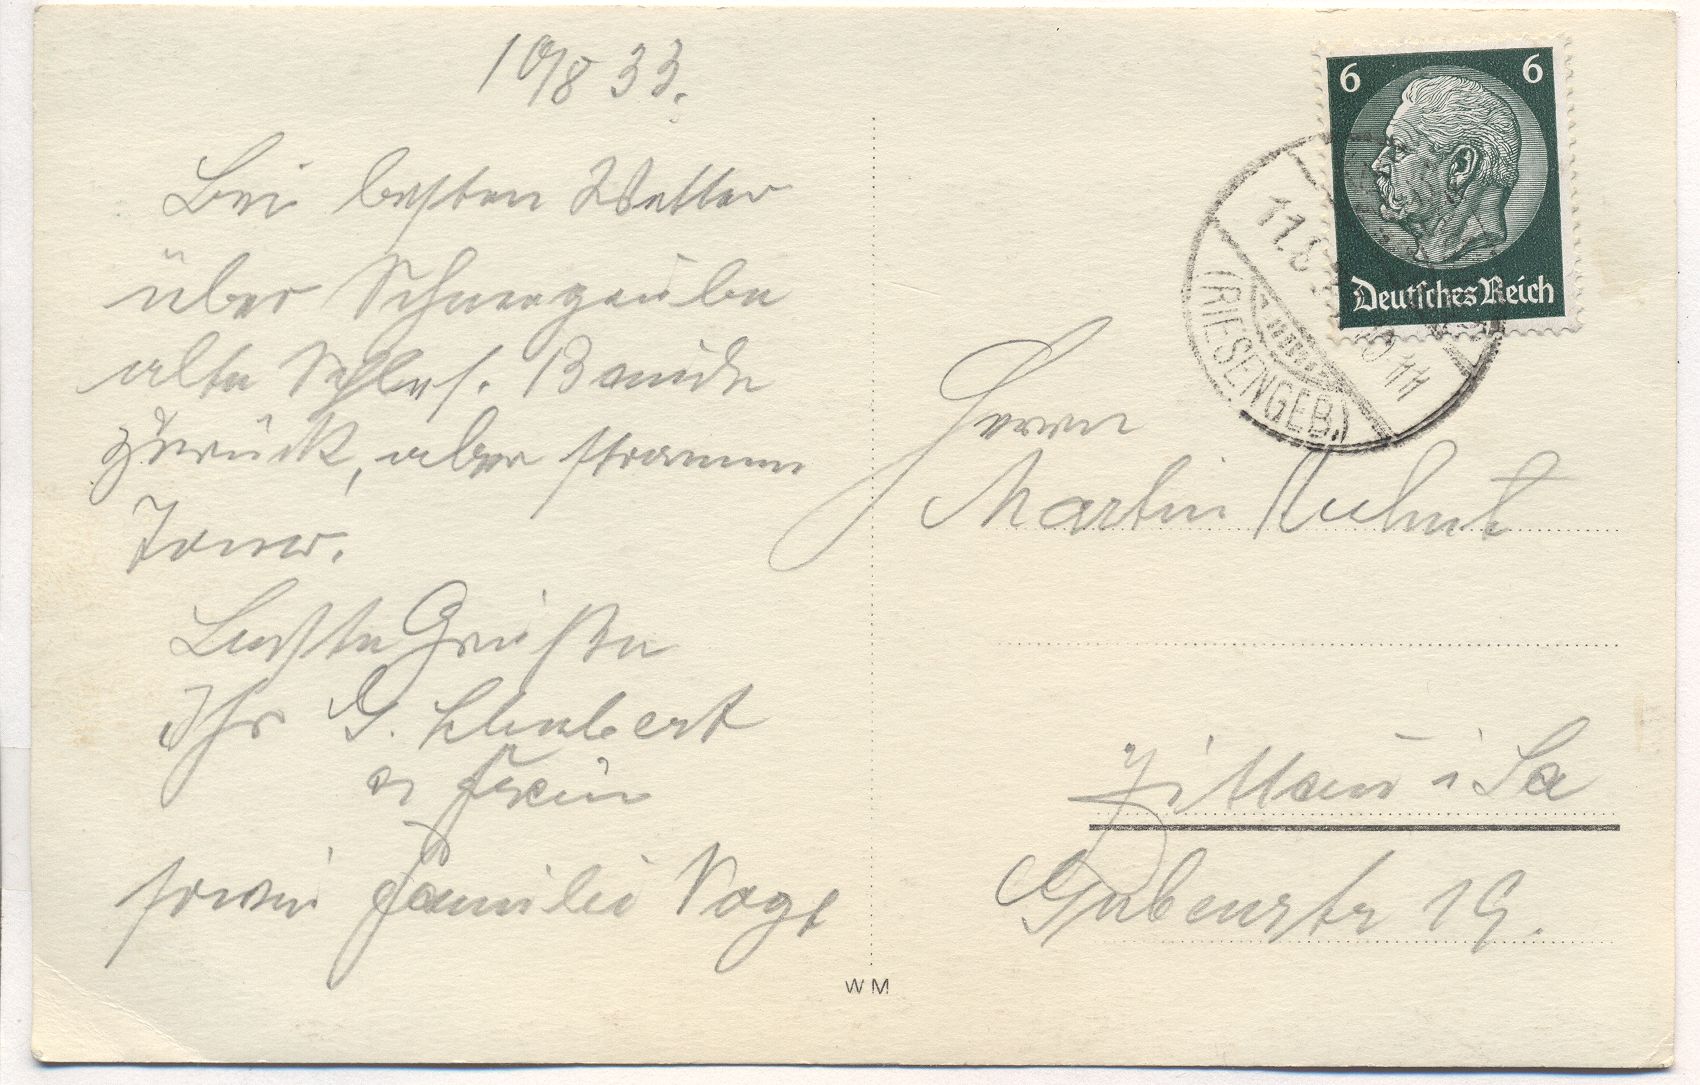 10/8 33.
Bei besten Wetter
über Schneegrube
alte Schles. Baude
zurück, aber stramme
Tour.
Beste Grüße
Ihr G.
u Frau
sowie Familie Vogt
6 6
Deutsches Reich
11.8
(RIESENGEB.)
Herrn
Martin
Zittau i Sa
Grübenstr 19.
W M